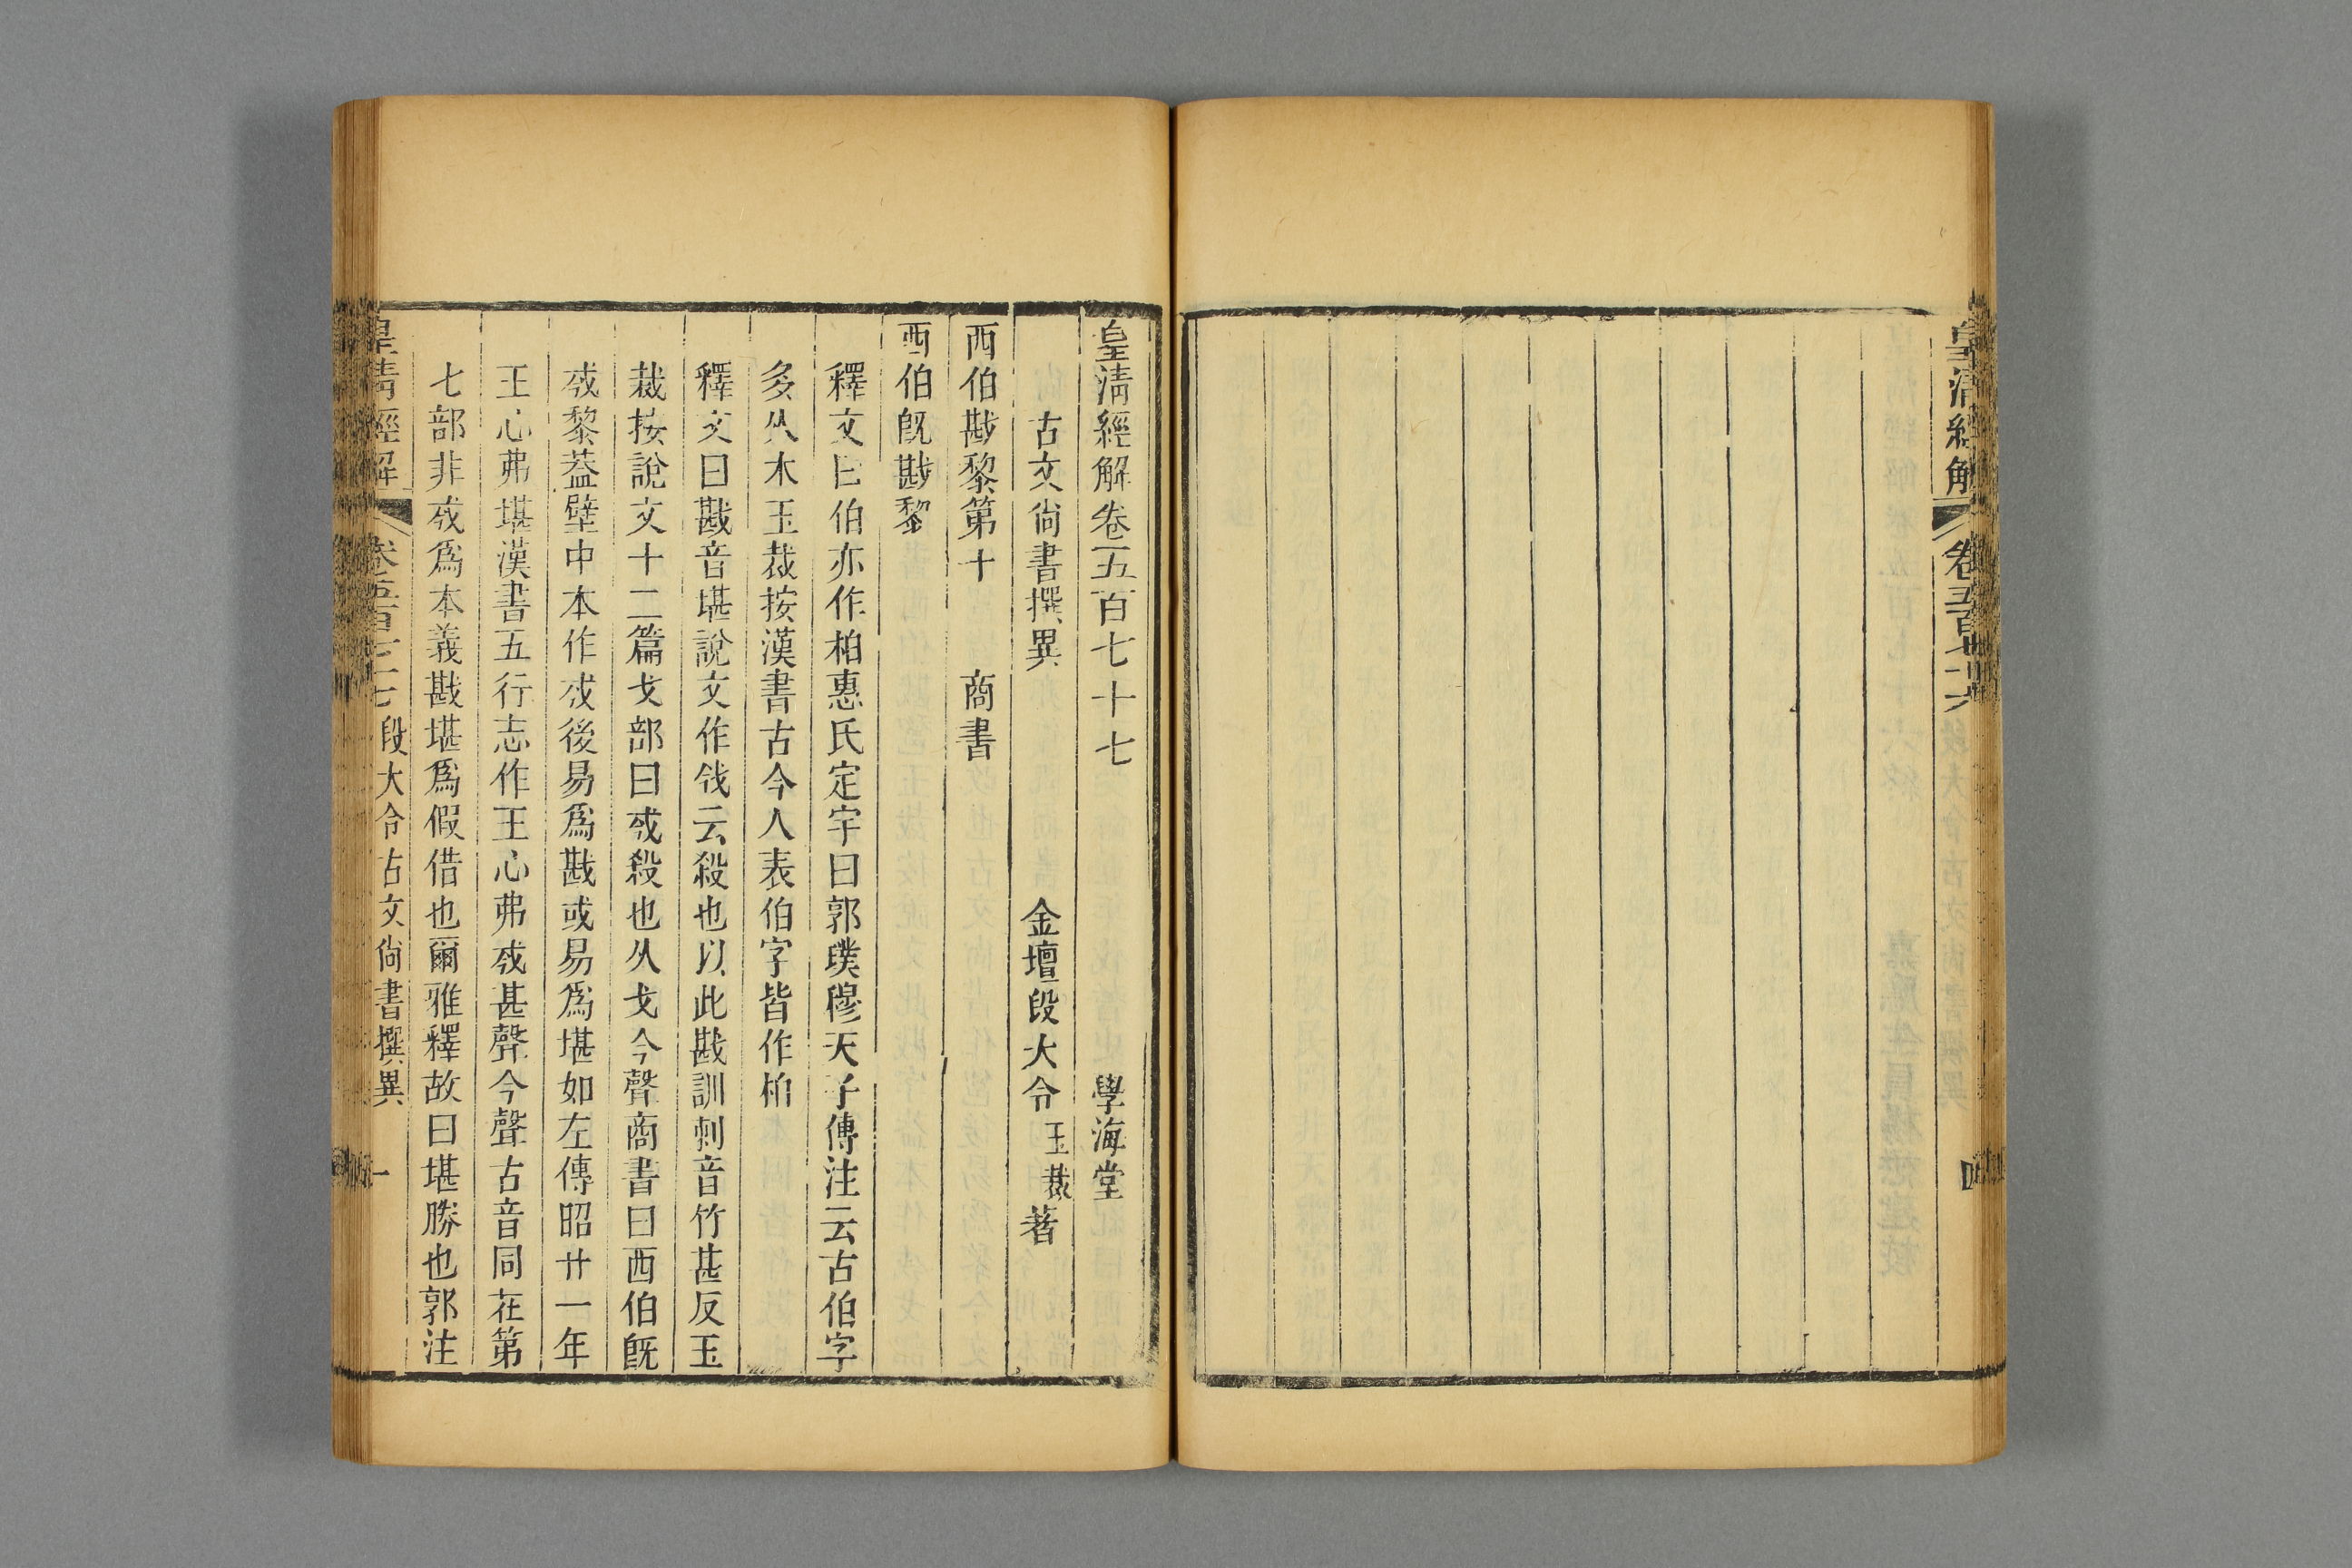 皇清經解 卷五百七十六
皇清經解卷五百七十七 學海堂
古文尙書撰異 金壇段大令玉裁著
西伯戡黎第十 商書
西伯旣戡黎
釋文曰伯亦作柏惠氏定宇曰郭璞穆天子傳注云古伯字
多从木玉裁按漢書古今人表伯字皆作柏
釋文曰戡音堪說文作㦰云殺也以此戡訓刺音竹甚反玉
裁按說文十二篇戈部曰㦰殺也从戈今聲商書曰西伯旣
㦰黎葢壁中本作㦰後易爲戡或易爲堪如左傳昭廿一年
王心弗堪漢書五行志作王心弗㦰甚聲今聲古音同在第
七部非㦰爲本義戡堪爲假借也爾雅釋故曰堪勝也郭注
皇清經解 卷五百七十七 段大令古文尙書撰異 一